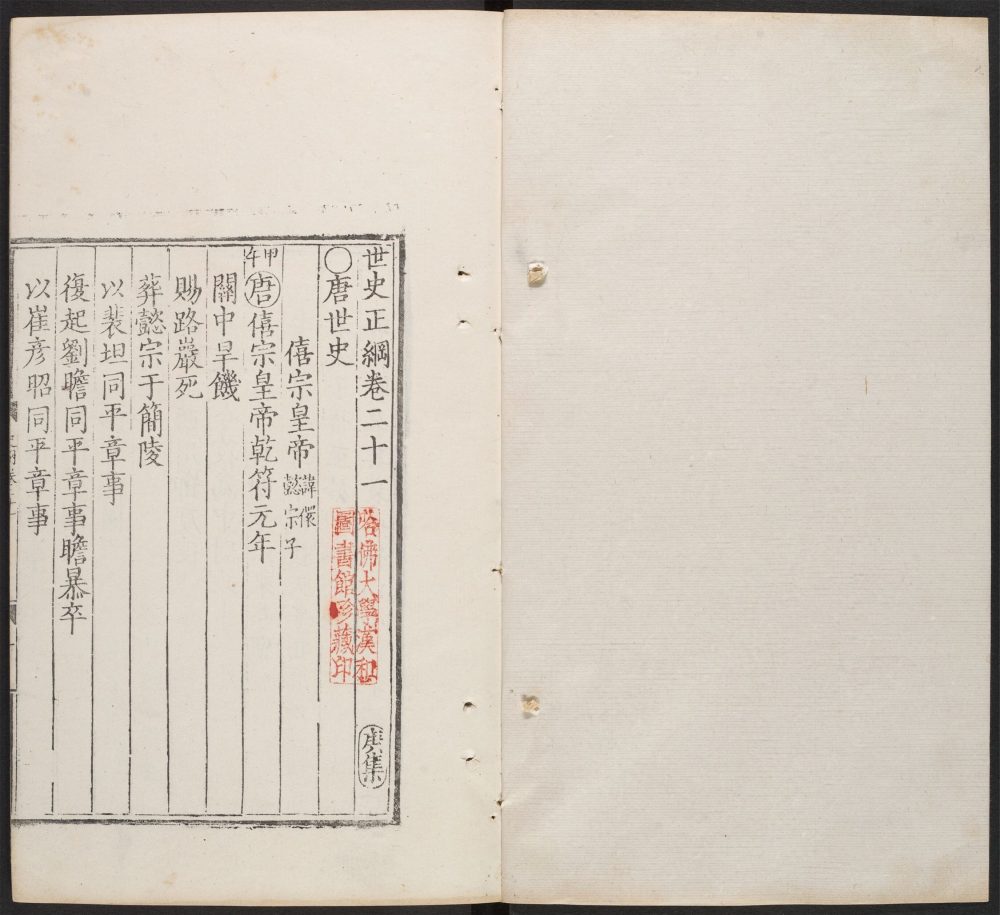 世史正綱卷二十一 庚集
○唐世史
僖宗皇帝 諱儇
懿宗子
甲午
唐僖宗皇帝乾符元年
關中旱饑
賜路巖死
葬懿宗于簡陵
以裴坦同平章事
復起劉瞻同平章事瞻暴卒
以崔彥昭同平章事
哈佛大學漢和
圖書館珍藏印